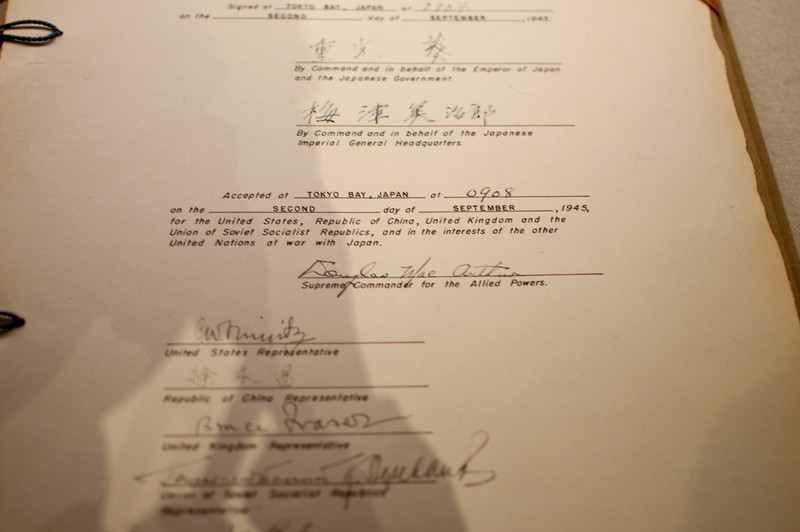 Signed at TOKYO BAY, JAPAN at 0904
on the SECOND day of SEPTEMBER, 1945.
重光 葵
By Command and in behalf of the Emperor of Japan
and the Japanese Government.
梅津美治郎
By Command and in behalf of the Japanese
Imperial General Headquarters.
Accepted at TOKYO BAY, JAPAN at 0908
on the SECOND day of SEPTEMBER, 1945,
for the United States, Republic of China, United Kingdom and the
Union of Soviet Socialist Republics, and in the interests of the other
United Nations at war with Japan.
Douglas MacArthur
Supreme Commander for the Allied Powers.
CW Nimitz
United States Representative
徐永昌
Republic of China Representative
Bruce Fraser
United Kingdom Representative
Union of Soviet Socialist Republics
Representative